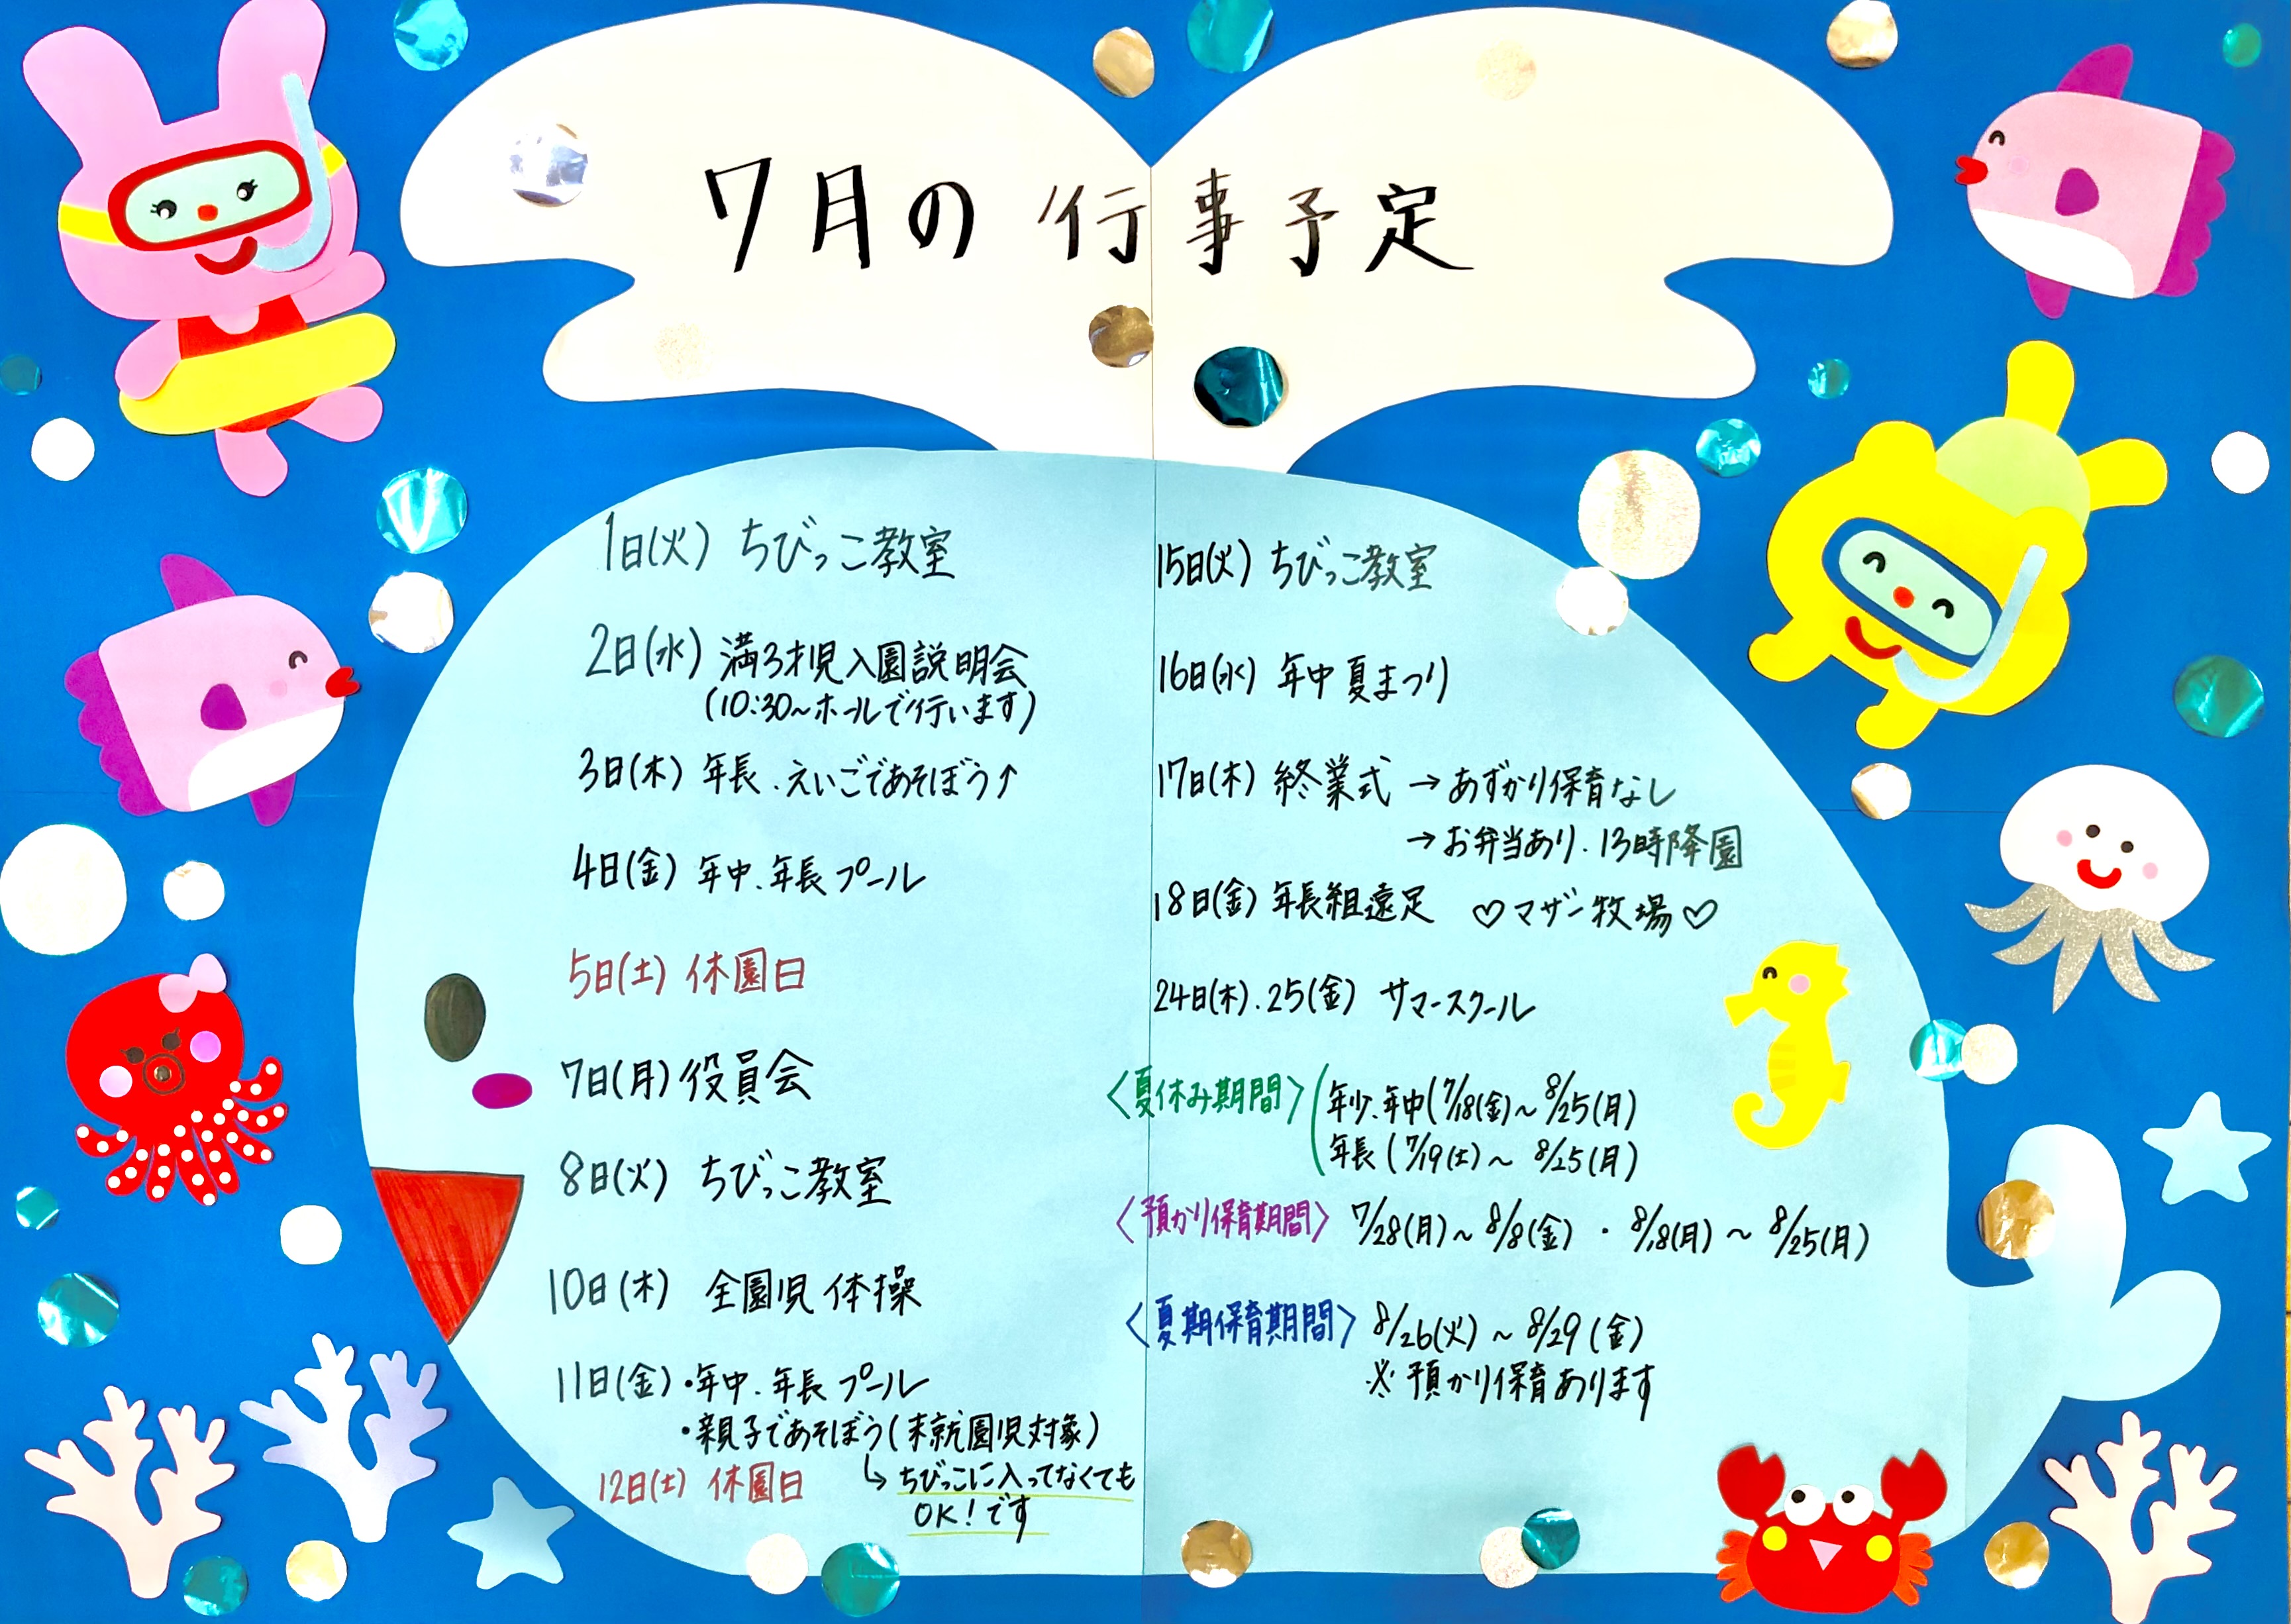 7月の行事予定
1日(火) ちびっこ教室
2日(水) 満3才児入園説明会
(10:30~ホールで行います)
3日(木) 年長.えいごであそぼう↑
4日(金) 年中.年長プール
5日(土) 休園日
7日(月) 役員会
8日(火) ちびっこ教室
10日(木) 全園児体操
11日(金)・年中.年長プール
・親子であそぼう(未就園児対象)
↳ちびっこに入ってなくても
OK!です
12日(土) 休園日
15日(火) ちびっこ教室
16日(水) 年中夏まつり
17日(木) 終業式→あずかり保育なし
→お弁当あり.13時降園
18日(金) 年長組遠足 ♡マザー牧場♡
24日(木).25(金) サマースクール
〈夏休み期間〉 年少.年中(7/18(金)~8/25(月)
年長(7/19(土)~8/25(月)
〈預かり保育期間〉 7/28(月)~8/8(金)・8/18(月)~8/25(月)
〈夏期保育期間〉 8/26(火)~8/29(金)
※預かり保育あります